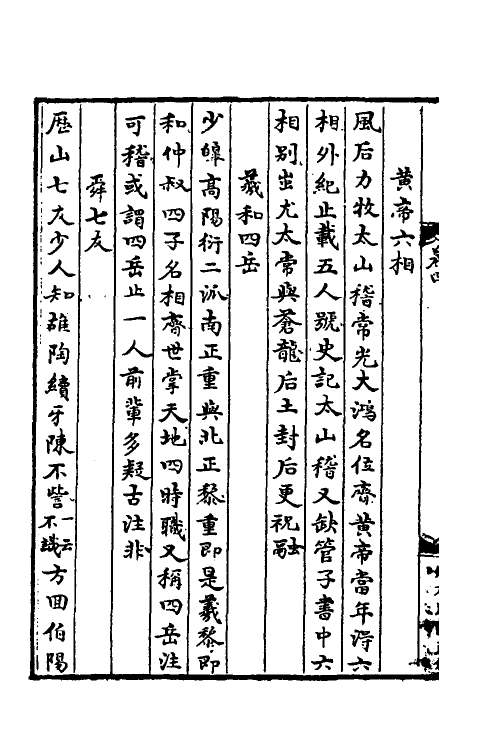 黄帝六相
風后力牧太山稽常先大鴻名位齊黄帝當年得六
相外紀止載五人號史記太山稽又缺管子書中六
相别出尤太常與蒼龍后土封后更祝融
羲和四岳
少皞高陽衍二派南正重與北正黎重即是羲黎即
和仲叔四子名相齊世掌天地四時職又稱四岳注
可稽或謂四岳止一人前輩多疑古注非
舜七友
歷山七友少人知雄陶續牙陳不訾一云不識方回伯陽